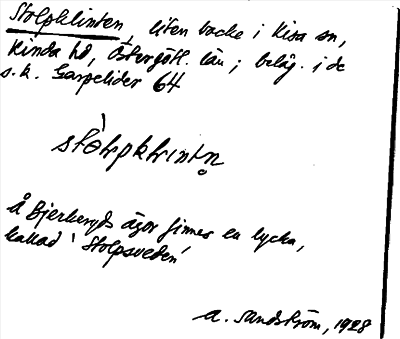 Stolpklinten, liten backe i Kisa sn,
Kinda hd, Östergötl. län; beläg. i de
s.k. Garpelider 64
stòlpklintn̥
Å Bjerkeryds ägor finnes en lycka,
kallad 'Stolpsveden'
A. Sandström, 1928